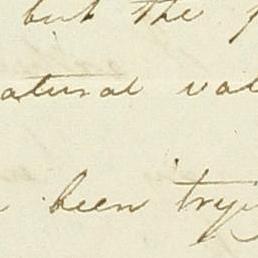 but the
natural val
been tryi